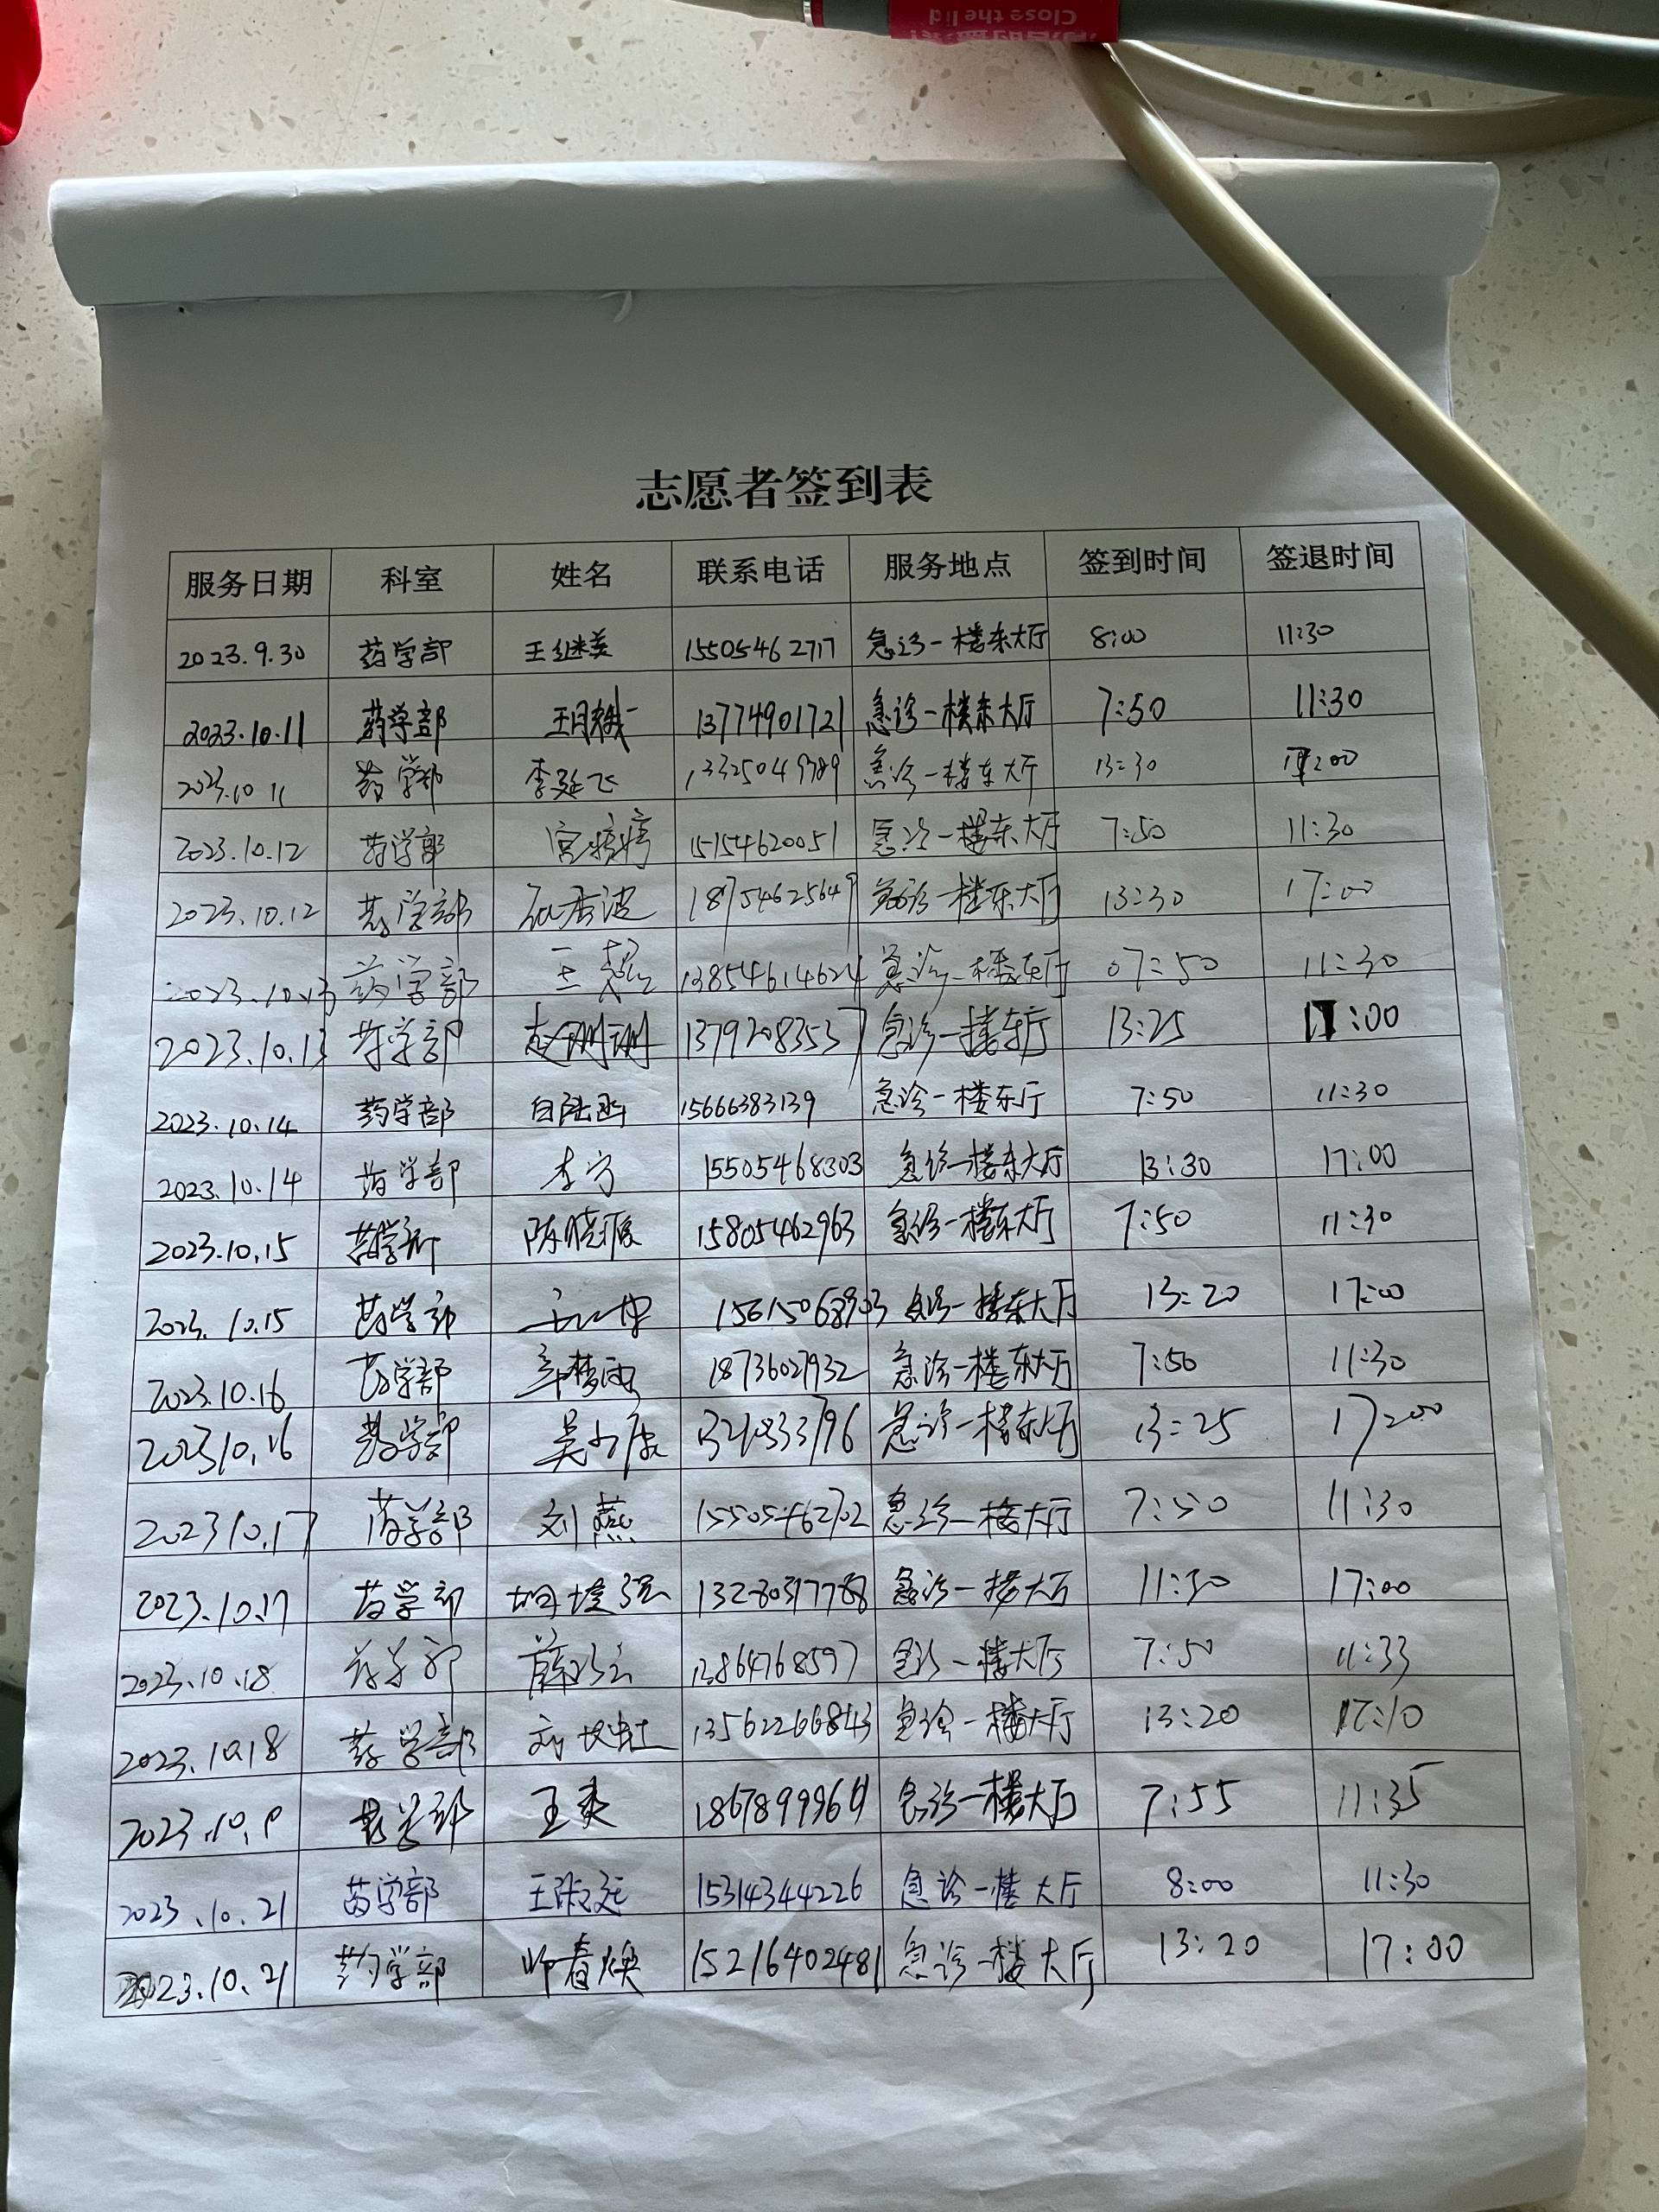 Close the lid
志愿者签到表
服务日期 科室 姓名 联系电话 服务地点 签到时间 签退时间
2023.9.30 药学部 王继美 15505462717 急诊一楼东大厅 8:00 11:30
2023.10.11 药学部 13774901721 急诊一楼东大厅 7:50 11:30
2023.10 11 药学部 李延飞 13325049789 急诊一楼东大厅 13:30 17:00
2023.10.12 药学部 宫婷婷 15154620051 急诊一楼东大厅 7:50 11:30
2023.10.12 药学部 石香波 18754625649 急诊一楼东大厅 13:30 17:00
2023.10.13 药学部 王 急诊一楼东厅 07:50 11:30
2023.10.13 药学部 赵珊珊 13792083537 急诊一楼东厅 13:25 17:00
2023.10.14 药学部 15666383139 急诊一楼东厅 7:50 11:30
2023.10.14 药学部 李宁 15505468303 急诊一楼东大厅 13:30 17:00
2023.10.15 药学部 15805462963 急诊一楼东大厅 7:50 11:30
2023.10.15 药学部 15615068903 急诊一楼东大厅 13:20 17:00
2023.10.16 药学部 辛梦雨 18736027932 急诊一楼东大厅 7:50 11:30
2023.10.16 药学部 急诊一楼东大厅 13:25 17:00
2023 10.17 药学部 刘燕 15505462702 急诊一楼大厅 7:50 11:30
2023.10.17 药学部 急诊一楼大厅 17:00
2023.10.18 药学部 13864768597 急诊一楼大厅 7:50 11:33
2023.10.18 药学部 13562266843 急诊一楼大厅 13:20 17:10
药学部 王爽 急诊一楼大厅 7:55 11:35
2023.10.21 药学部 15314344226 急诊一楼大厅 8:00 11:30
2023.10.21 药学部 15216402481 急诊一楼大厅 13:20 17:00